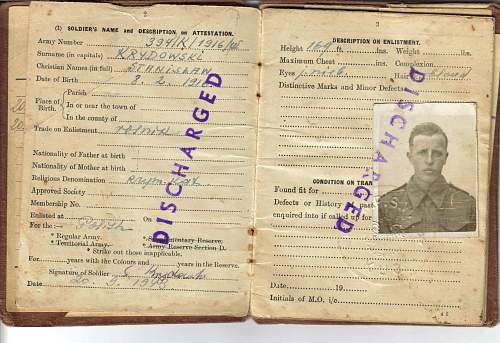 2
(1) SOLDIER'S NAME and DESCRIPTION on ATTESTATION.
Army Number
Surname (in capitals) KRYDOWSKI
Christian Names (in full) STANISŁAW
Date of Birth 8. 2.
Place of Birth
Parish
In or near the town of
In the county of
Trade on Enlistment rolnik
Nationality of Father at birth
Nationality of Mother at birth
Religious Denomination rzym. kat.
Approved Society
Membership No.
Enlisted at On
For the :— Polish
* Regular Army. * Supplementary Reserve.
* Territorial Army. * Army Reserve Section D.
* Strike out those inapplicable.
For years with the Colours and years in the Reserve.
Signature of Soldier S. Krydowski
Date 20.
DISCHARGED
3
DESCRIPTION ON ENLISTMENT.
Height 169 ft. ins. Weight lbs.
Maximum Chest ins. Complexion
Eyes nieb. Hair blond
Distinctive Marks and Minor Defects
CONDITION ON TRAN
Found fit for
Defects or History of past
enquired into if called up for
Date 19
Initials of M.O. i/c
DISCHARGED